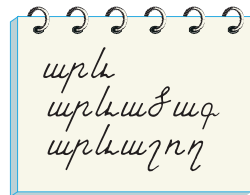 արև
արևածագ
արևաշող